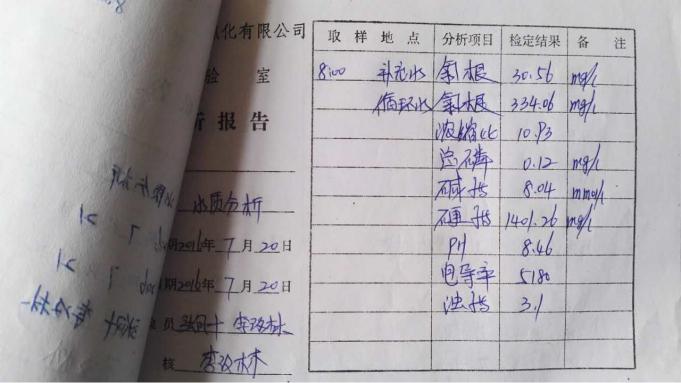 化有限公司
验 室
析报告
水质分析
期2016年7月20日
期2016年7月20日
员
核 李改林
取样地点 分析项目 检定结果 备注
8:00 补充水 氯根 30.56 mg/l
循环水 氯根 334.06 mg/l
浓缩比 10.93
总磷 0.12 mg/l
碱指 8.04 mmol/l
硬指 1401.26 mg/l
PH 8.46
电导率 5180
浊指 3.1